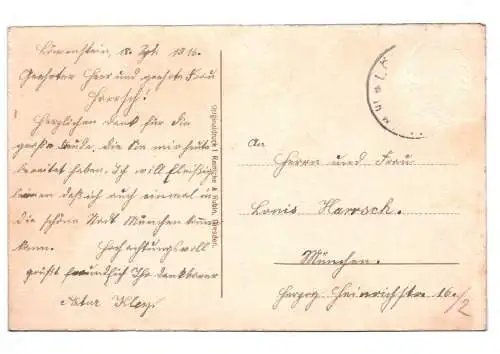 Löwenstein, 18. Spt. 1916.
Geehrter Herr und geehrte Frau
Harrsch!
Herzlichen Dank für die
große Freude, die Sie mir heute
bereitet haben. Ich will fleissig
lernen daß ich auch einmal in
die schöne Stadt München kommen
kann. Hochachtungsvoll
grüßt freundlich Ihr dankbarer
Artur Kley.
Originaldruck I. Rentsche & Robin, Dresden.
An
Herrn und Frau
Louis Harrsch.
München.
Herzog Heinrichstr. 16./2